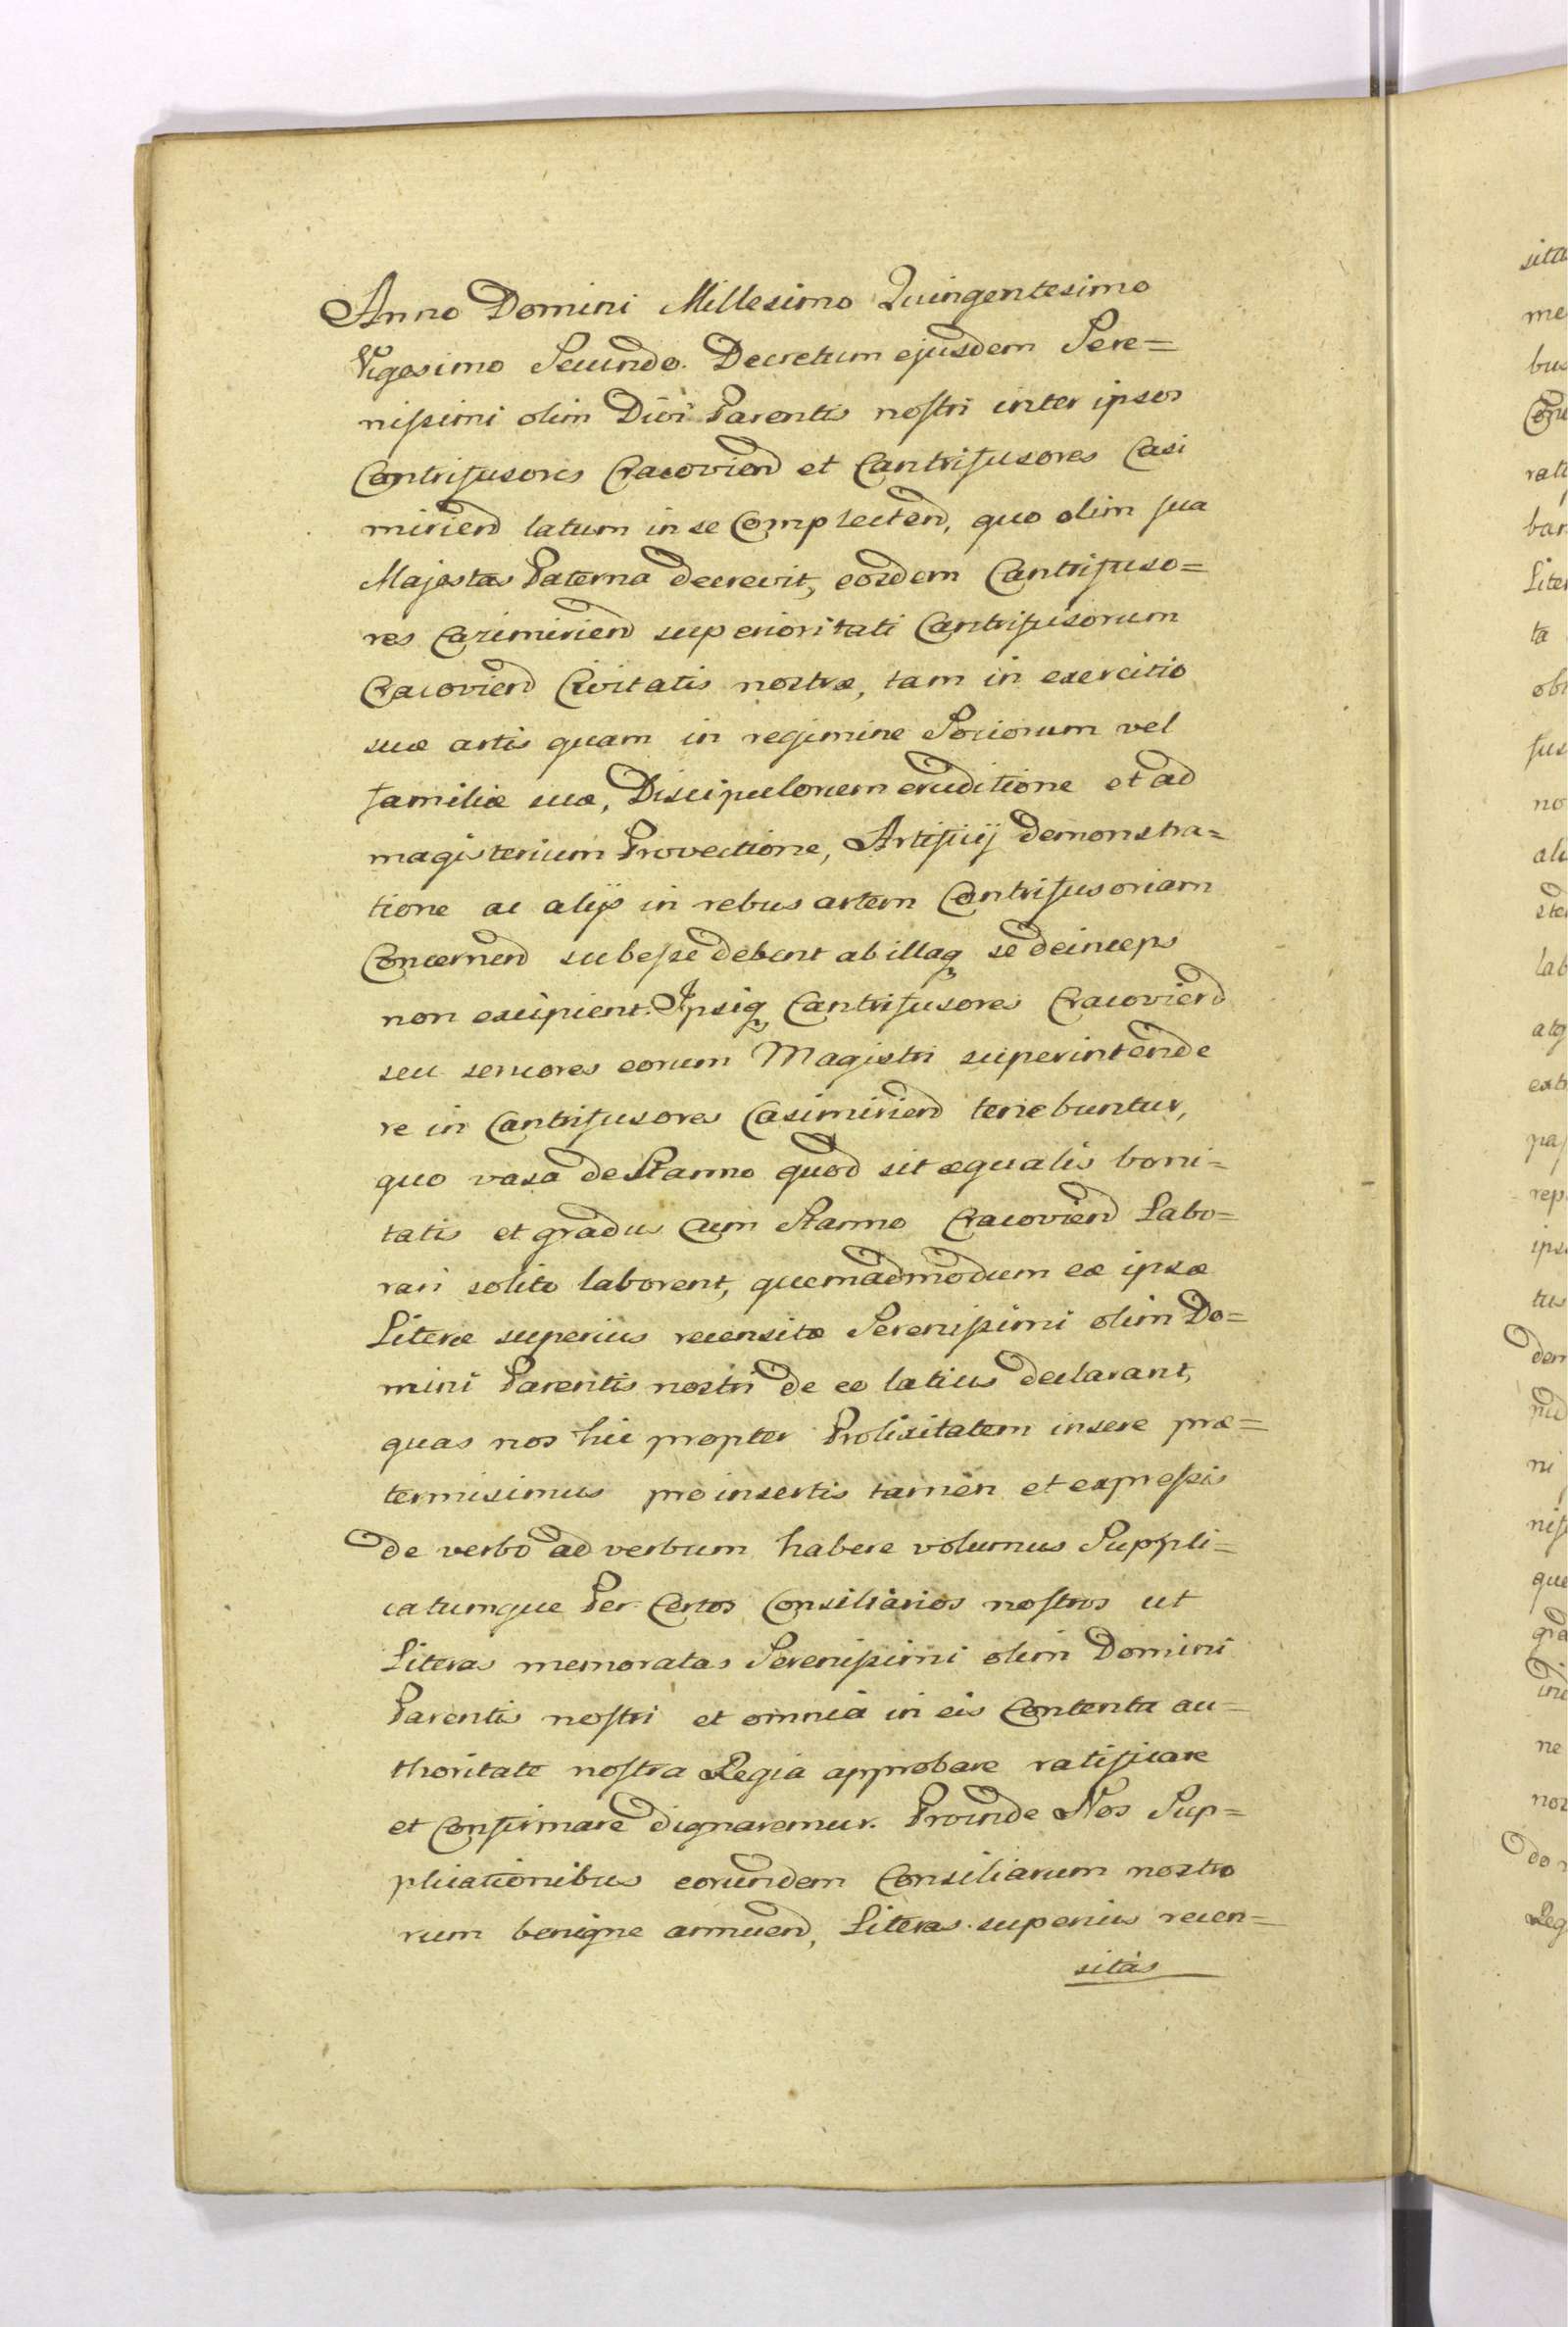 Anno Domini Millesimo Quingentesimo
Vigesimo Secundo. Decretum ejusdem Sere=
nissimi olim Divi Parentis nostri inter ipsos
Cantrifusores Cracoviend et Cantrifusores Casi
miriend latum in se Complectend, quo olim sua
Majestas Paterna decrevit, eosdem Cantrifuso=
res Cazimiriend superioritati Cantrifusorum
Cracoviend Civitatis nostræ, tam in exercitio
suæ artis quam in regimine Sociorum vel
familiæ suæ, Discipulorum eruditione et ad
magisterium Provectione, Artificij demonstra=
tione ac alijs in rebus artem Cantrifusoriam
Concernend subesse debent ab illaq se deinceps
non excipient. Ipsiq Cantrifusores Cracoviend
seu seniores eorum Magistri superintende
re in Cantrifusores Casimiriend tenebuntur,
quo vasa de Stanno quod sit æqualis boni=
tatis et gradus Cum Stanno Cracoviend Labo=
rari solito laborent, quemadmodum eæ ipsæ
Literæ superius recensitæ Serenissimi olim Do=
mini Parentis nostri de eo latius declarant,
quas nos hic propter Prolixitatem insere præ=
termisimus pro insertis tamen et expressis
de verbo ad verbum habere volumus Suppli=
catumque Per Certos Consiliarios nostros ut
Literas memoratas Serenissimi olim Domini
Parentis nostri et omnia in eis Contenta au=
thoritate nostra Regia approbare ratificare
et Confirmare dignaremur. Proinde Nos Sup=
plicationibus eorundem Consiliarum nostro
rum benigne annuend, Literas superius recen=
sitas